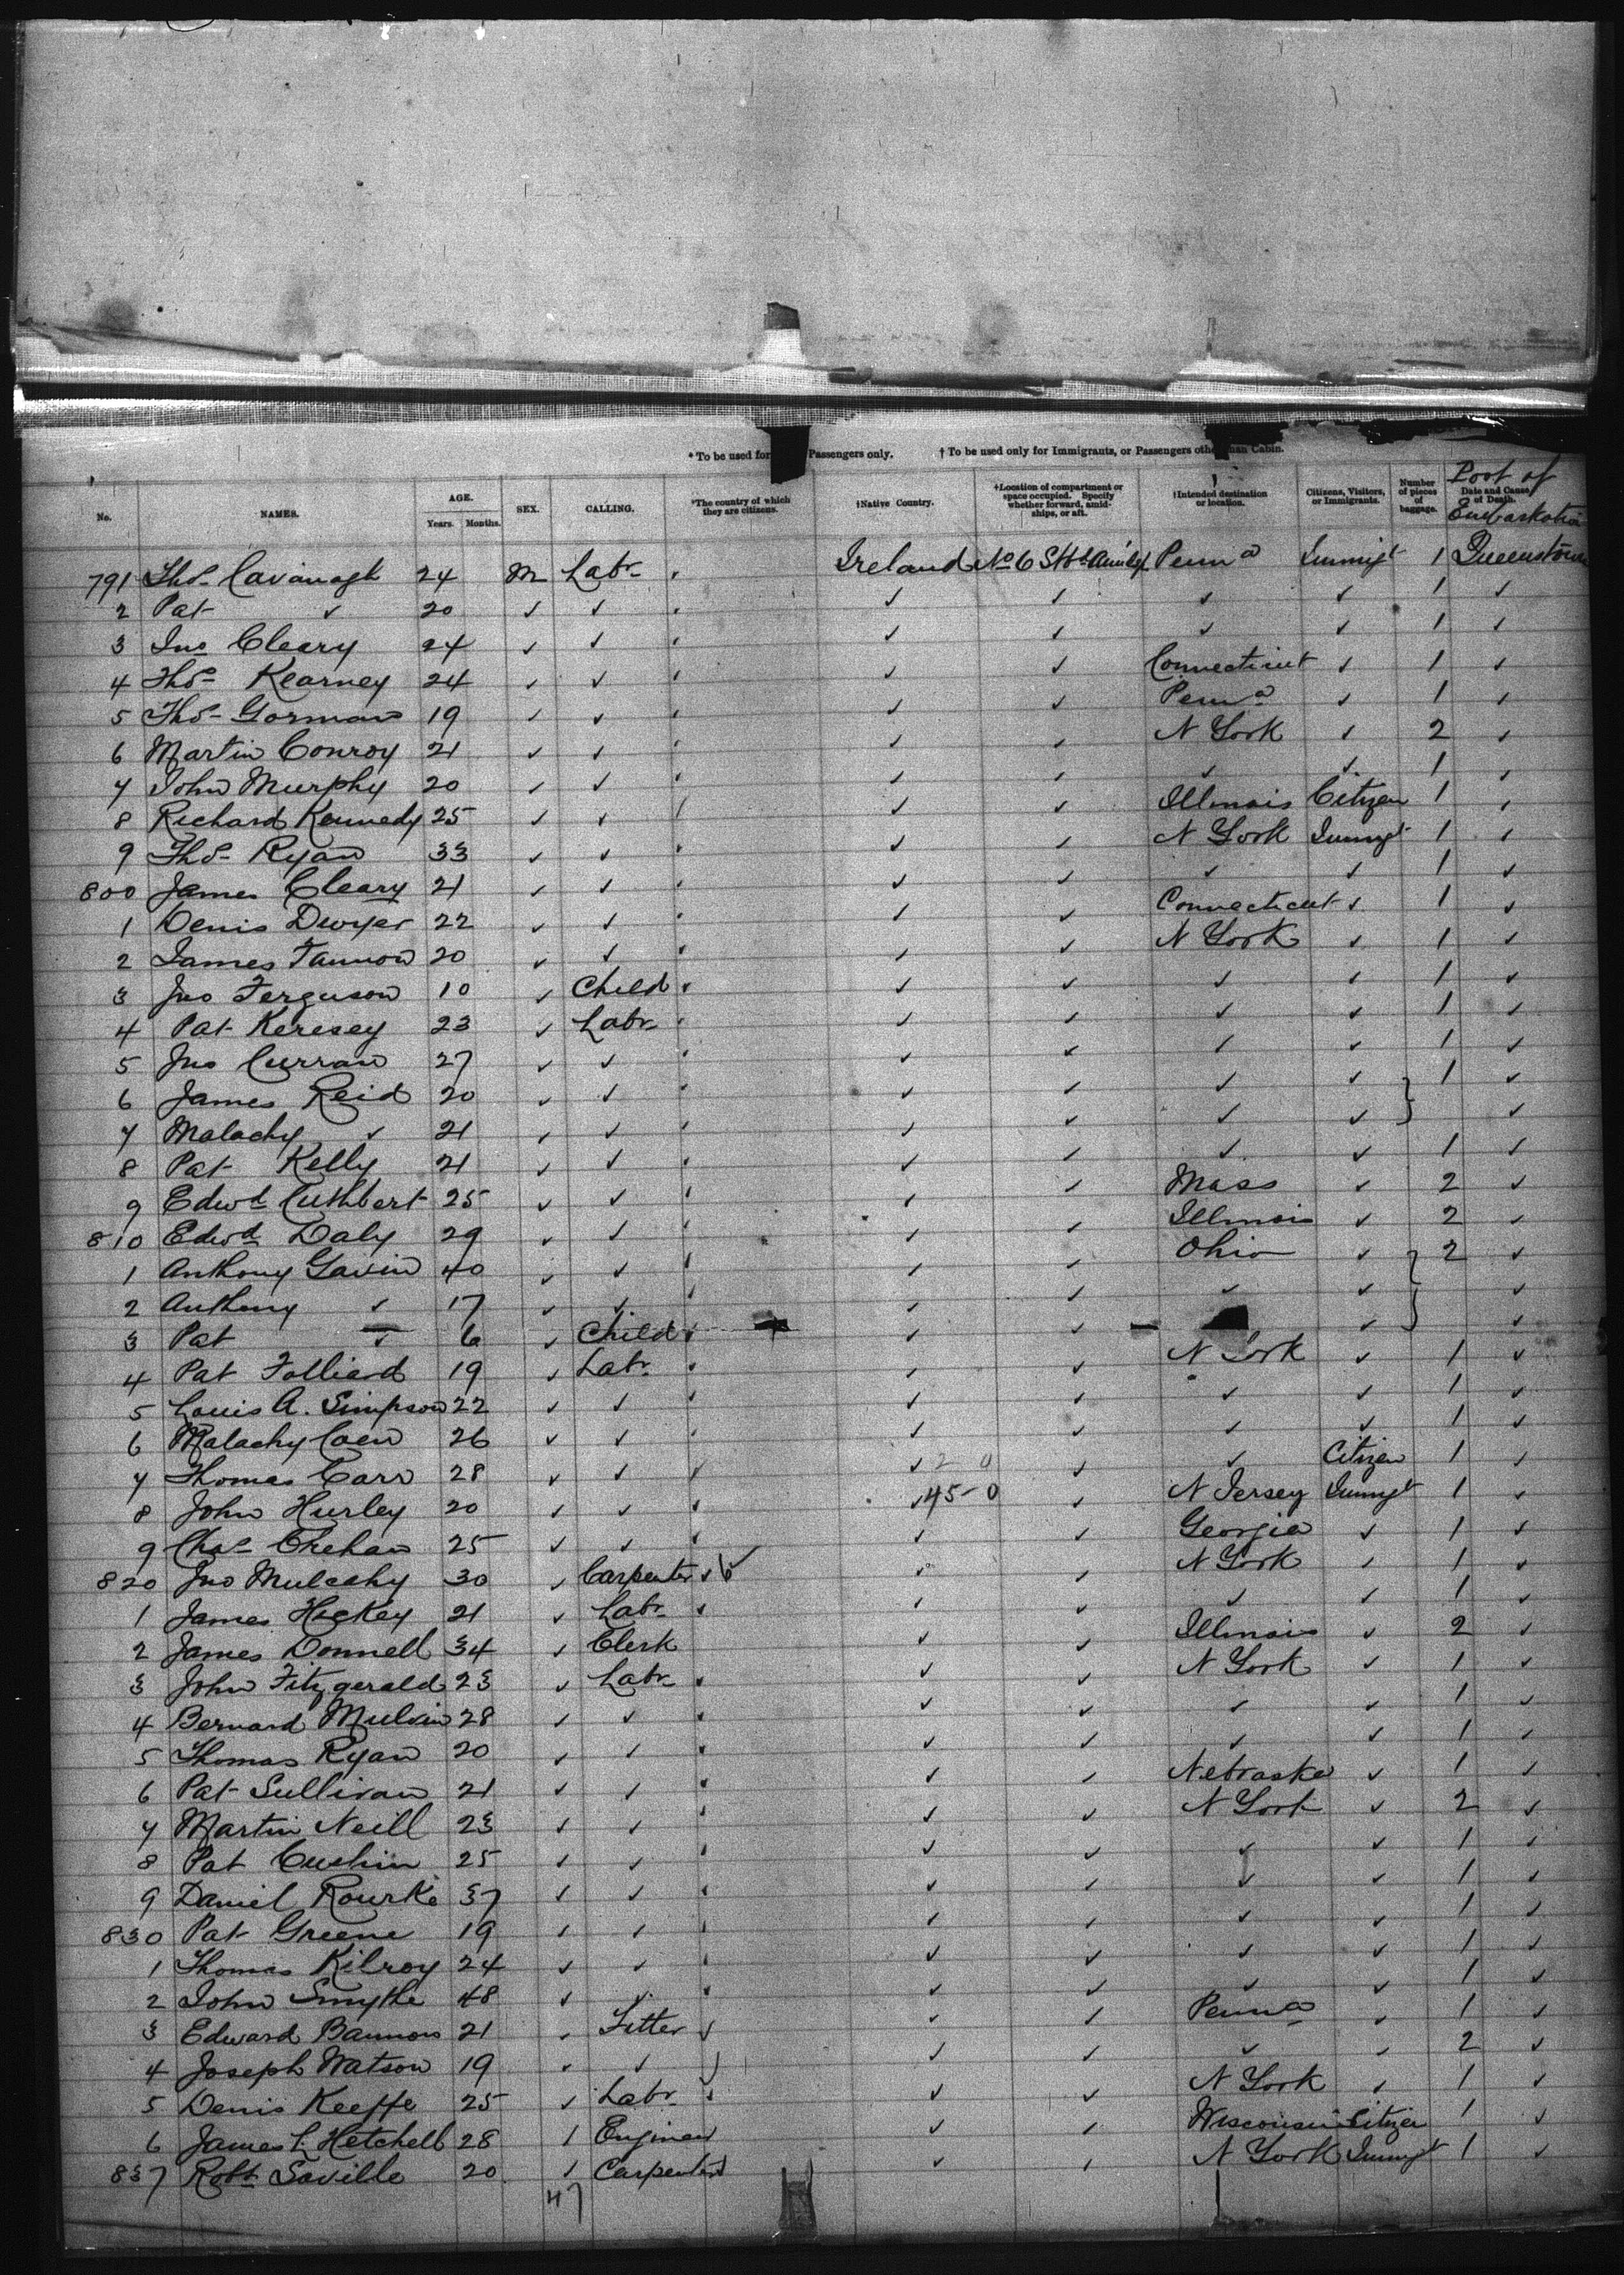 * To be used for Passengers only. † To be used only for Immigrants, or Passengers other than Cabin.
No. NAMES. AGE. Years. Months. SEX. CALLING. *The country of which they are citizens. †Native Country. †Location of compartment or space occupied. Specify whether forward, amidships, or aft. †Intended destination or location. Citizens, Visitors, or Immigrants. Number of pieces of baggage. Date and Cause of Death. Port of Embarkation
791 Thos Cavanagh 24 M Labr Ireland No 6 Penna Immigt 1 Queenstown
2 Pat ✓ 20 ✓ ✓ ✓ ✓ ✓ ✓ 1 ✓
3 Jno Cleary 24 ✓ ✓ ✓ ✓ ✓ ✓ 1 ✓
4 Thos Kearney 24 ✓ ✓ ✓ ✓ Connecticut ✓ 1 ✓
5 Thos Gorman 19 ✓ ✓ ✓ ✓ Penna ✓ 1 ✓
6 Martin Conroy 21 ✓ ✓ ✓ ✓ N York ✓ 2 ✓
7 John Murphy 20 ✓ ✓ ✓ ✓ ✓ ✓ 1 ✓
8 Richard Kennedy 25 ✓ ✓ ✓ ✓ Illinois Citizen 1 ✓
9 Thos Ryan 33 ✓ ✓ ✓ ✓ N York Immgt 1 ✓
800 James Cleary 21 ✓ ✓ ✓ ✓ ✓ ✓ 1 ✓
1 Denis Dwyer 22 ✓ ✓ ✓ ✓ Connecticut ✓ 1 ✓
2 James Fannon 20 ✓ ✓ ✓ ✓ N York ✓ 1 ✓
3 Jno Ferguson 10 ✓ Child ✓ ✓ ✓ ✓ 1 ✓
4 Pat Keresey 23 ✓ Labr ✓ ✓ ✓ ✓ 1 ✓
5 Jno Curran 27 ✓ ✓ ✓ ✓ ✓ ✓ 1 ✓
6 James Reid 20 ✓ ✓ ✓ ✓ ✓ ✓ } 1 ✓
7 Malachy ✓ 21 ✓ ✓ ✓ ✓ ✓ ✓ ✓
8 Pat Kelly 21 ✓ ✓ ✓ ✓ ✓ ✓ 1 ✓
9 Edwd Cuthbert 25 ✓ ✓ ✓ ✓ Mass ✓ 2 ✓
810 Edwd Daly 29 ✓ ✓ ✓ ✓ Illinois ✓ 2 ✓
1 Anthony Gavin 40 ✓ ✓ ✓ ✓ Ohio ✓ } 2 ✓
2 Anthony ✓ 17 ✓ ✓ ✓ ✓ ✓ ✓ ✓
3 Pat ✓ 6 ✓ Child ✓ ✓ ✓ ✓
4 Pat Folliard 19 ✓ Labr ✓ ✓ N York ✓ 1 ✓
5 Louis A. Simpson 22 ✓ ✓ ✓ ✓ ✓ ✓ 1 ✓
6 Malachy Coen 26 ✓ ✓ ✓ ✓ ✓ ✓ 1 ✓
7 Thomas Carr 28 ✓ ✓ ✓ 2 0 ✓ ✓ Citizen 1 ✓
8 John Hurley 20 ✓ ✓ ✓ 45-0 ✓ N Jersey Immgt 1 ✓
9 Chas Crehan 25 ✓ ✓ ✓ ✓ Georgia ✓ 1 ✓
820 Jno Mulcahy 30 ✓ Carpenter ✓ ✓ N York ✓ 1 ✓
1 James Hickey 21 ✓ Labr ✓ ✓ ✓ ✓ 1 ✓
2 James Donnell 34 ✓ Clerk ✓ ✓ Illinois ✓ 2 ✓
3 John Fitzgerald 23 ✓ Labr ✓ ✓ N York ✓ 1 ✓
4 Bernard Mulvin 28 ✓ ✓ ✓ ✓ ✓ ✓ 1 ✓
5 Thomas Ryan 20 ✓ ✓ ✓ ✓ ✓ ✓ 1 ✓
6 Pat Sullivan 21 ✓ ✓ ✓ ✓ Nebraska ✓ 1 ✓
7 Martin Neill 23 ✓ ✓ ✓ ✓ N York ✓ 2 ✓
8 Pat Cushin 25 ✓ ✓ ✓ ✓ ✓ ✓ 1 ✓
9 Daniel Rourke 37 ✓ ✓ ✓ ✓ ✓ ✓ 1 ✓
830 Pat Greene 19 ✓ ✓ ✓ ✓ ✓ ✓ 1 ✓
1 Thomas Kilroy 24 ✓ ✓ ✓ ✓ ✓ ✓ 1 ✓
2 John Smythe 48 ✓ ✓ ✓ ✓ ✓ ✓ 1 ✓
3 Edward Bannon 21 ✓ Fitter ✓ ✓ Penna ✓ 1 ✓
4 Joseph Watson 19 ✓ ✓ ✓ ✓ ✓ ✓ 2 ✓
5 Denis Keeffe 25 ✓ Labr ✓ ✓ N York ✓ 1 ✓
6 James Hetchell 28 ✓ Engineer ✓ ✓ Wisconsin Citizen 1 ✓
837 Robt Saville 20 ✓ Carpenter ✓ ✓ N York Immgt 1 ✓
47